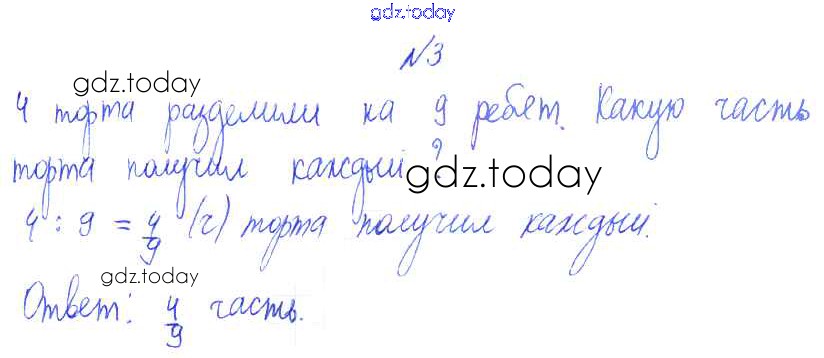 gdz.today
№3
gdz.today
4 торта разделили на 9 ребят. Какую часть
торта получил каждый?
gdz.today
4 : 9 = 4/9 (ч) торта получил каждый.
gdz.today
Ответ: 4/9 часть.